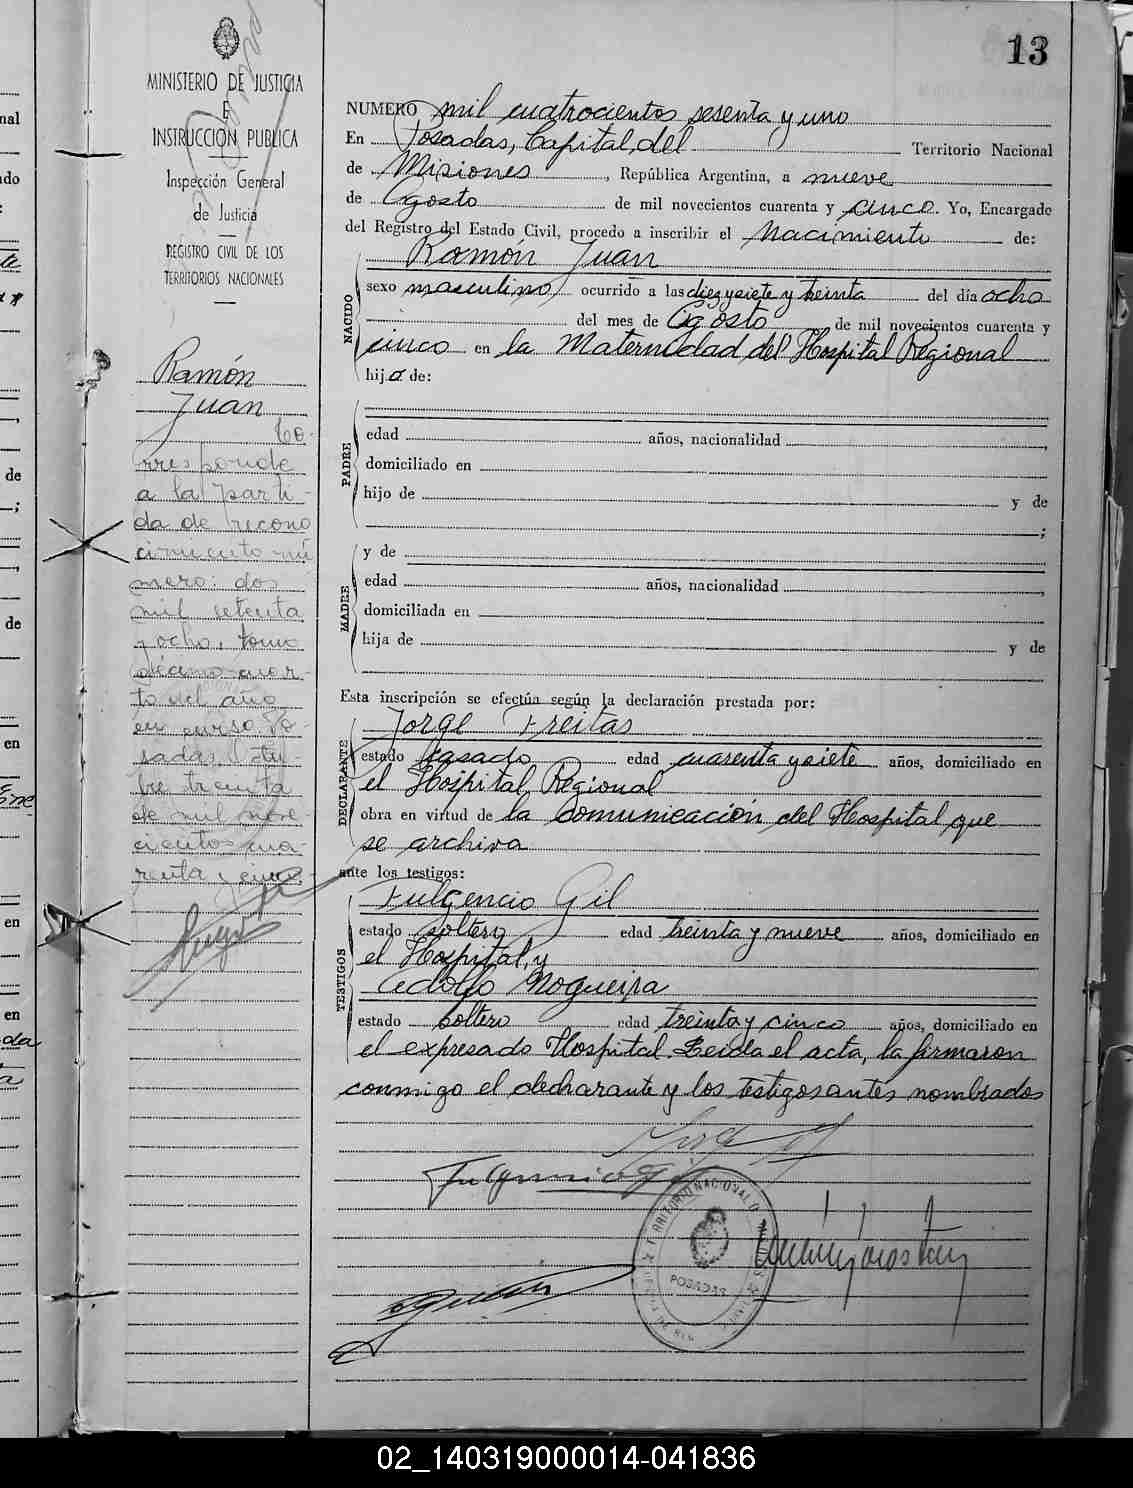 13
MINISTERIO DE JUSTICIA
E
INSTRUCCION PUBLICA
Inspección General
de Justicia
REGISTRO CIVIL DE LOS
TERRITORIOS NACIONALES
Ramón
Juan
Co-
rresponde
a la parti-
da de recono
cimiento nú
mero: dos
mil setenta
y ocho, tomo
décimo cuar-
to del año
en curso. Po-
sadas, Octu-
bre treinta
de mil nove-
cientos cua-
renta y cinco.
NUMERO mil cuatrocientos sesenta y uno
En Posadas, Capital, del Territorio Nacional
de Misiones, República Argentina, a nueve
de Agosto de mil novecientos cuarenta y cinco. Yo, Encargado
del Registro del Estado Civil, procedo a inscribir el Nacimiento de:
NACIDO
Ramón Juan
sexo masculino ocurrido a las diez y siete y treinta del día ocho
del mes de Agosto de mil novecientos cuarenta y
cinco en la Maternidad del Hospital Regional
hijo de:
PADRE
edad años, nacionalidad
domiciliado en
hijo de y de
;
MADRE
y de
edad años, nacionalidad
domiciliada en
hija de y de
Esta inscripción se efectúa según la declaración prestada por:
DECLARANTE
Jorge Freitas
estado casado edad cuarenta y siete años, domiciliado en
el Hospital Regional
obra en virtud de la comunicación del Hospital que
se archiva
ante los testigos:
TESTIGOS
Fulgencio Gil
estado soltero edad treinta y nueve años, domiciliado en
el Hospital, y
Adolfo Nogueira
estado soltero edad treinta y cinco años, domiciliado en
el expresado Hospital. Leida el acta, la firmaron
conmigo el declarante y los testigos antes nombrados
Fulgencio Gil
TERRITORIO NACIONAL D
POSADAS
02_140319000014-041836